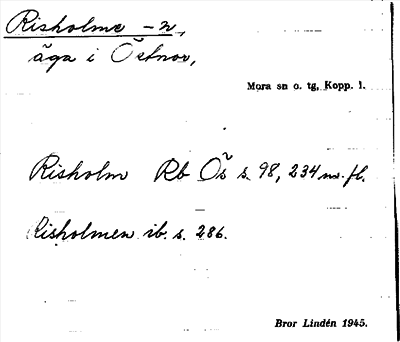 Risholme -n,
äga i Östnor,
Mora sn o. tg, Kopp. l.
Risholm Rb Ös s. 98, 234 m. fl.
Risholmen ib. s. 286.
Bror Lindén 1945.